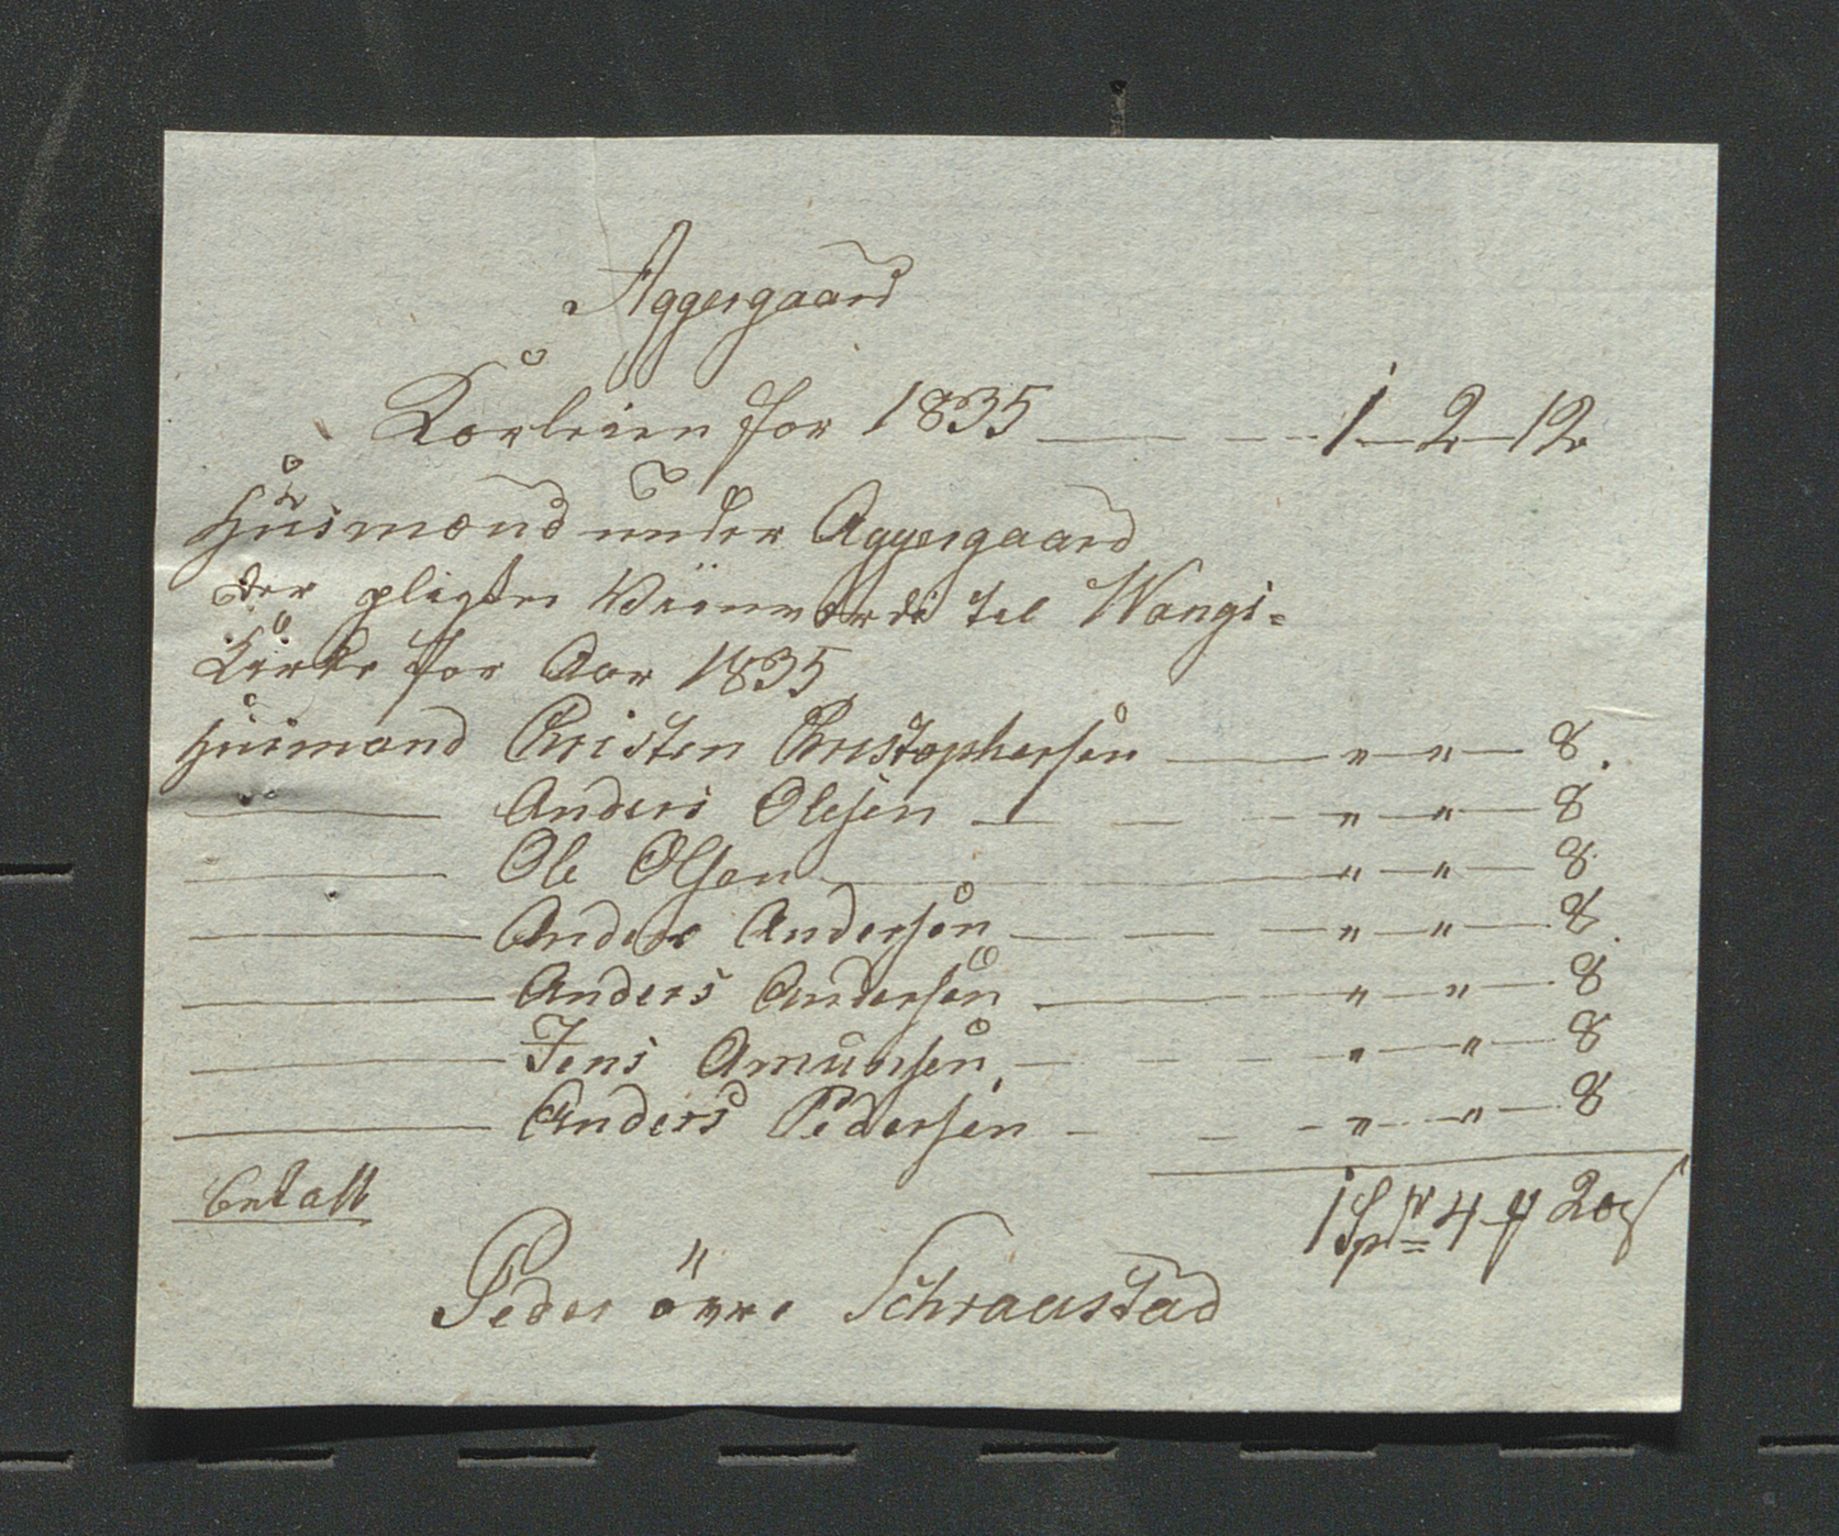 Aggergaard
Korleien for 1835 — — — 1 — 2 — 12
Huusmænd under Aggergaard
der pligter Viinværdi til Wangs-
Kirke for Aar 1835
Huusmand Christen Christophersen — " — " — 8.
— Anders Olesen — — — " — " — 8
— Ole Olsen — " — " — 8.
— Anders Andersen — — — " — " — 8.
— Anders Andersen — " — " — 8
— Jens Amunsen. — — — " — " 8
— Anders Pedersen — — — " — " — 8
betalt
1 Spdr 4 ꝳ 20 s
Peder övre Schraastad